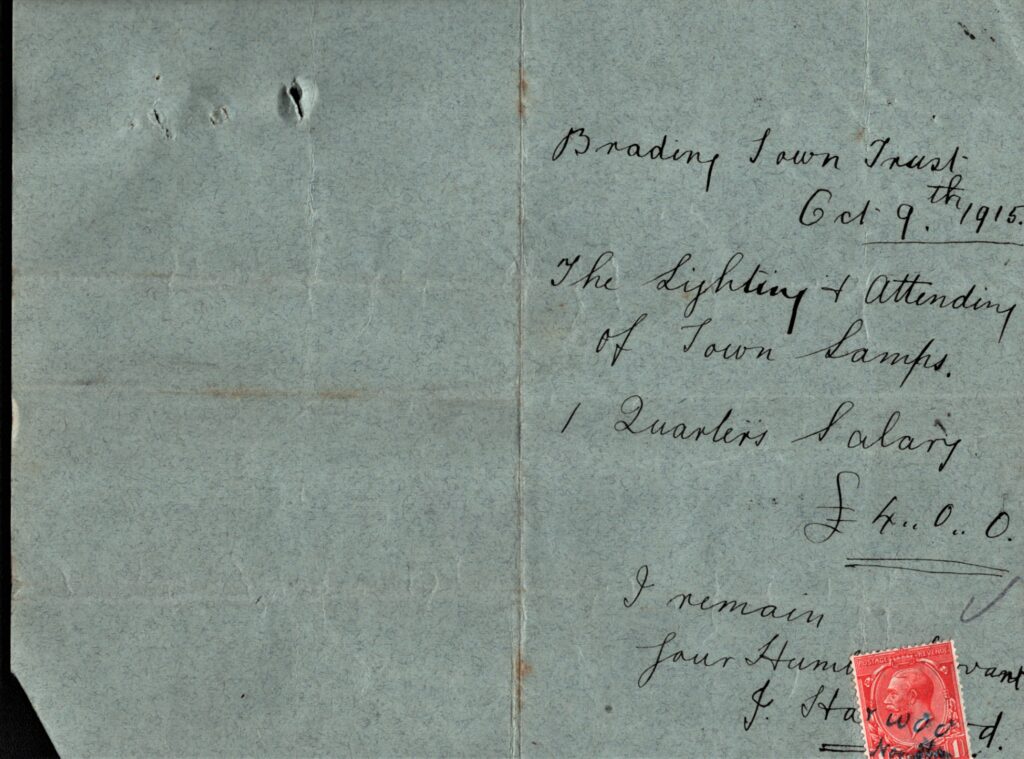 Brading Town Trust
Oct 9.th 1915.
The Lighting & Attending
of Town Lamps.
1 Quarter's Salary
£4..0..0.
I remain
Your Humb vant
POSTAGE REVENUE
J. Harwood.
Nov 1